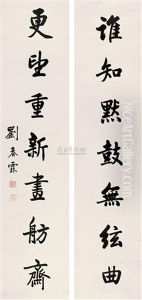 誰知默鼓無弦曲
更望重新畫舫齋
劉春霖